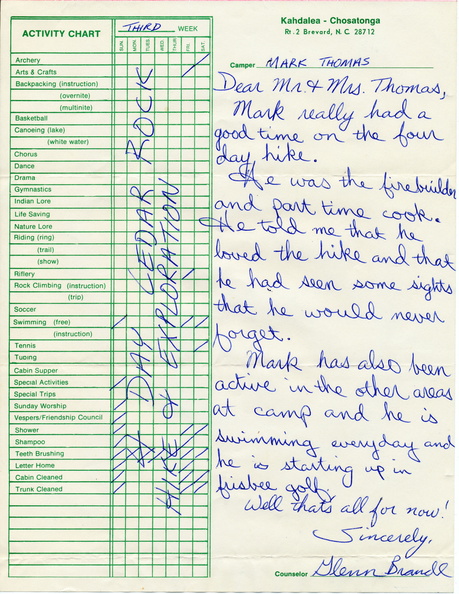 ACTIVITY CHART
THIRD WEEK
SUN. MON. TUES. WED. THUR. FRI. SAT.
Archery
Arts & Crafts
Backpacking (instruction)
(overnite)
(multinite)
Basketball
Canoeing (lake)
(white water)
Chorus
Dance
Drama
Gymnastics
Indian Lore
Life Saving
Nature Lore
Riding (ring)
(trail)
(show)
Riflery
Rock Climbing (instruction)
(trip)
Soccer
Swimming (free)
(instruction)
Tennis
Tubing
Cabin Supper
Special Activities
Special Trips
Sunday Worship
Vespers/Friendship Council
Shower
Shampoo
Teeth Brushing
Letter Home
Cabin Cleaned
Trunk Cleaned
4 DAY CEDAR ROCK
HIKE & EXPLORATION
Kahdalea - Chosatonga
Rt. 2 Brevard, N. C. 28712
Camper MARK THOMAS
Dear Mr. & Mrs. Thomas,
Mark really had a
good time on the four
day hike.
He was the firebuilder
and part time cook.
He told me that he
loved the hike and that
he had seen some sights
that he would never
forget.
Mark has also been
active in the other areas
at camp and he is
swimming everyday and
he is starting up in
frisbee golf.
Well thats all for now!
Sincerely,
Counselor Glenn Brandl